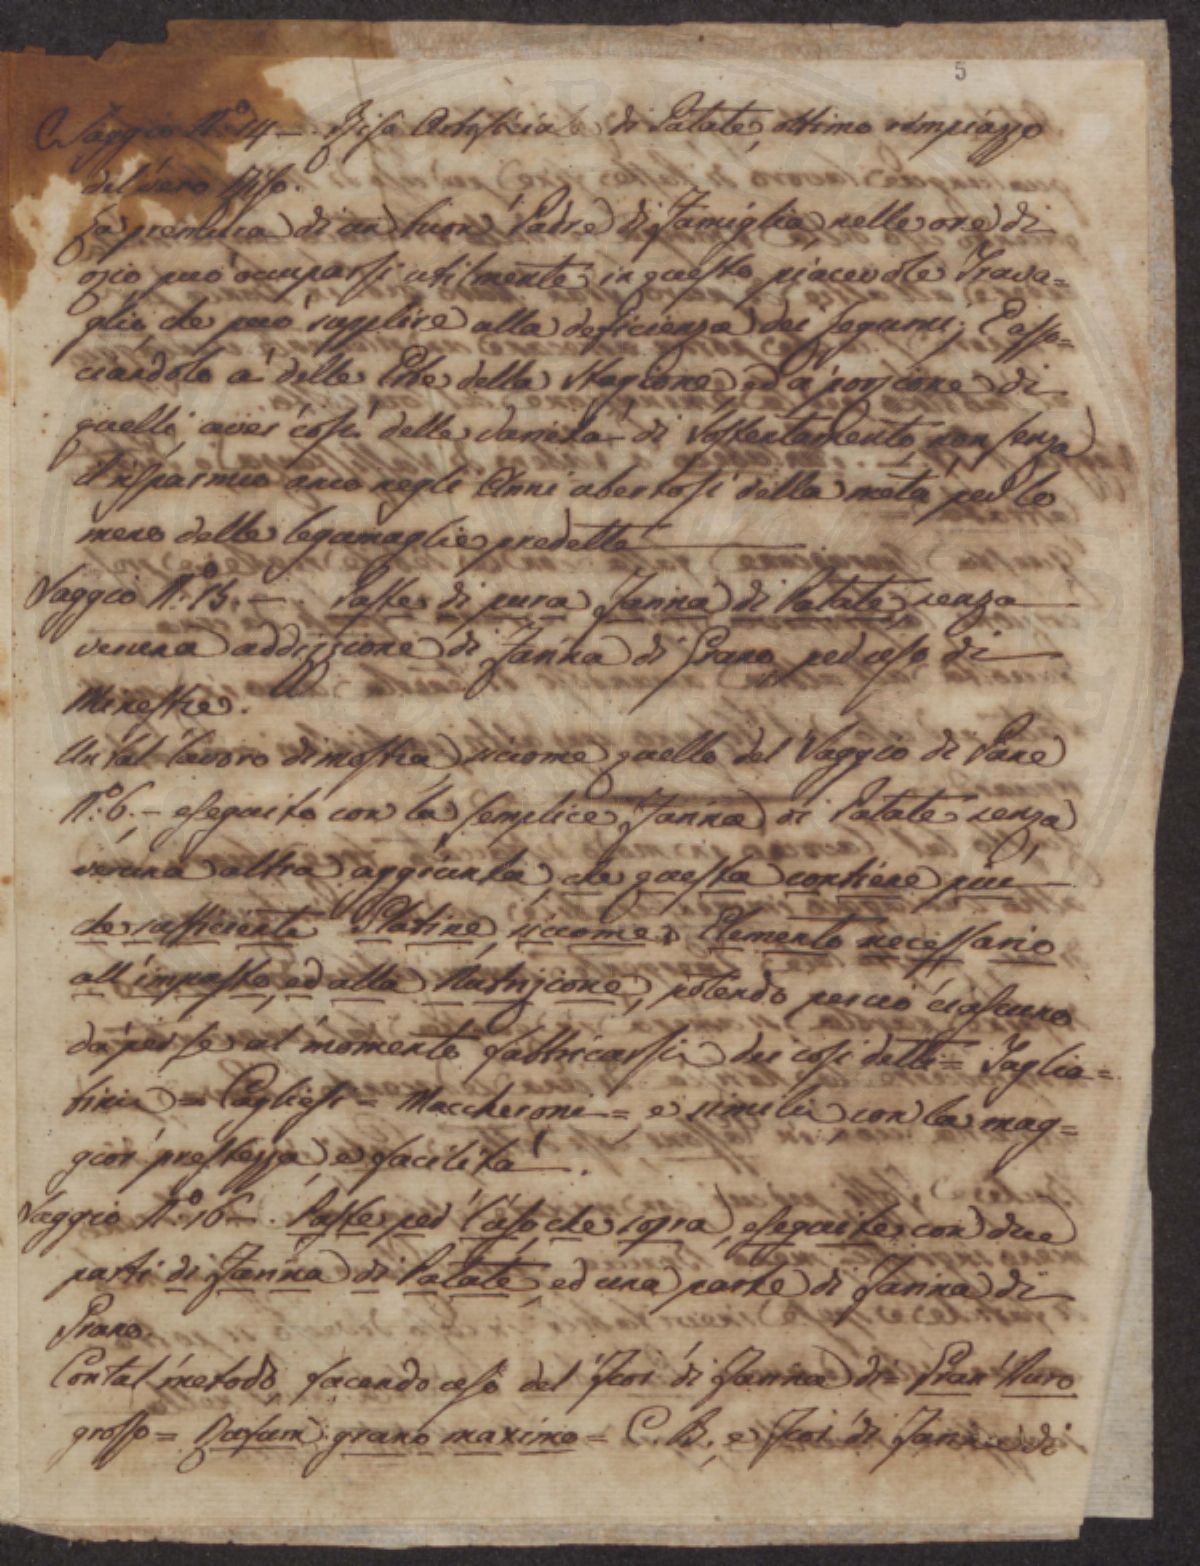 5
Saggio N.° 14 — Riso Artificiale di Patate, ottimo rimpiazzo
del vero Riso.
La premura di un buon Padre di Famiglia nelle ore di
ozio può occuparsi utilmente in questo piacevole Trava=
glio che può supplire alla deficienza dei Legumi; E asso=
ciandolo a' delle Erbe della Stagione, ed a' porzione di
quelli aver così delle varietà di Sostentamento, non senza
il risparmio anco negli Anni ubertosi della metà per lo
meno delle legumaglie predette
Saggio N.° 15. — Paste di pura Farina di Patate, senza
veruna addizzione di Farina di Grano per uso di
Minestre.
Un tal lavoro dimostra, siccome quello del Saggio di Pane
N.° 6. — eseguito con la semplice Farina di Patate senza
veruna altra aggiunta, che questa contiene più
che sufficiente Glutine, siccome Elemento necessario
all'impasto, ed alla Nutrizione, potendo perciò ciascuno
da per se al momento fabbricarsi dei così detti = Taglia=
tini = Cagliesi = Maccheroni = e simili con la mag=
gior prestezza e facilità.
Saggio N.° 16 — Paste per l'uso che sopra, eseguite con due
parti di Farina di Patate, ed una parte di Farina di
Grano.
Con tal metodo, facendo uso del Fior di Farina di = Gran Duro
grosso = grano maximo = C. B. e Fior di Farina di